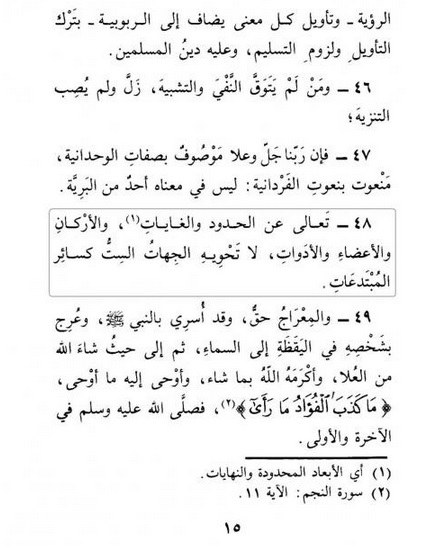 الرؤية ـ وتأويل كـل معنى يضاف إلى الـربوبيـة ـ بِتَرْك
التأويلِ ولزومِ التسليم، وعليه دينُ المسلمين.
٤٦ ـ ومَنْ لَمْ يَتَوَقَّ النَّفْيَ والتشبيهَ، زَلَّ ولم يُصِب
التنزيهَ؛
٤٧ ـ فإن رَبّنا جَلّ وعلا مَوْصُوفٌ بصفاتِ الوحدانية،
مَنْعوت بنعوتِ الفَرْدانية: ليس في معناه أحدٌ من البَرِيَّة.
٤٨ ـ تَعـالى عن الحـدود والغـايـاتِ(١)، والأرْكـانِ
والأعضاءِ والأدَواتِ، لا تَحْوِيـهِ الجِهاتُ السِتُّ كسـائِرِ
المُبْتَدعَاتِ.
٤٩ ـ والمِعْرَاجُ حقٌّ، وقد أُسرِي بالنبي ﷺ، وعُرِج
بشَخْصِهِ في اليَقَظَةِ إلى السماءِ، ثم إلى حيثُ شاءَ الله
من العُلا، وأكْرَمَهُ اللّهُ بما شاء، وأوْحى إليه ما أوْحى،
﴿مَا كَذَبَ الْفُؤَادُ مَا رَأَىٰ﴾(٢)، فصلَّى الله عليه وسلم في
الآخرة والأولى.
(١) أي الأبعاد المحدودة والنهايات.
(٢) سورة النجم: الآية ١١.
١٥